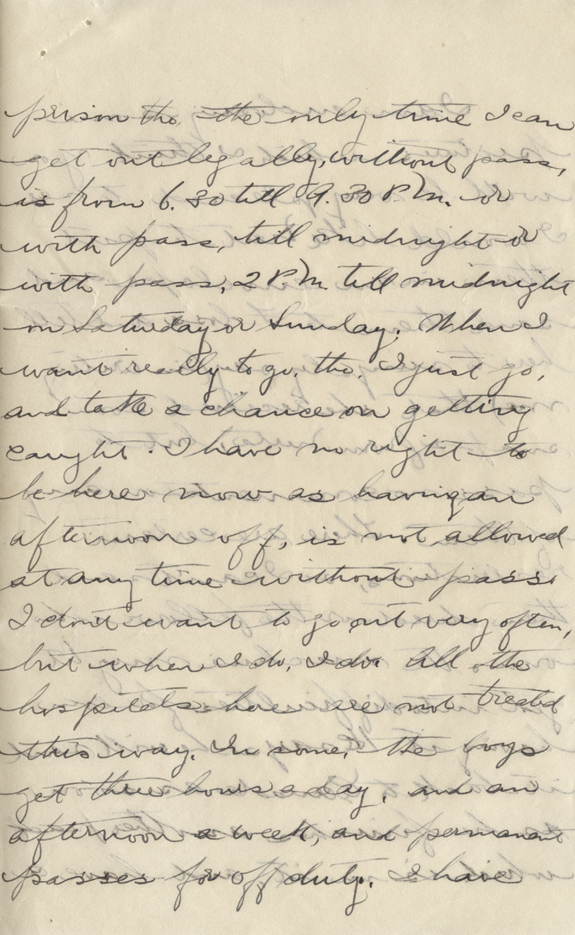 prison tho, the only time I can
get out legally, without pass,
is from 6.30 till 9.30 P.M. or
with pass, till midnight or
with pass, 2 P.M. till midnight
on Saturday or Sunday. When I
want really to go, tho. I just go,
and take a chance on getting
caught. I have no right to
be here now as having an
afternoon off, is not allowed
at any time without pass.
I don't want to go out very often,
but when I do, I do. All the
hospitals here are not treated
this way. In some, the boys
get three hours a day, and an
afternoon a week, and permanant
passes for off duty. I have